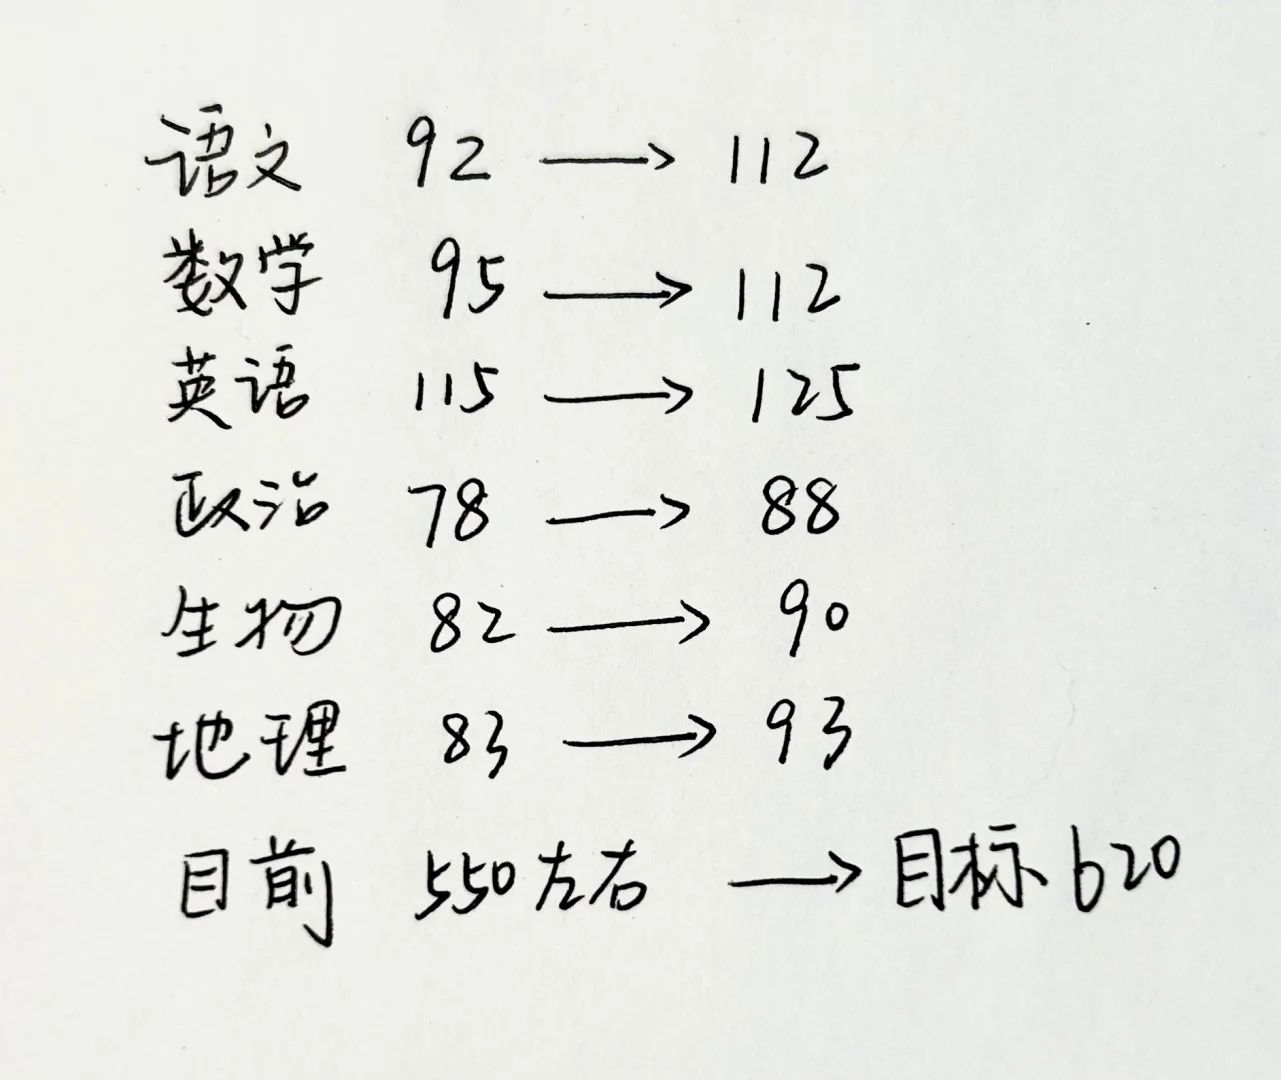 语文 92 → 112
数学 95 → 112
英语 115 → 125
政治 78 → 88
生物 82 → 90
地理 83 → 93
目前 550左右 → 目标 620